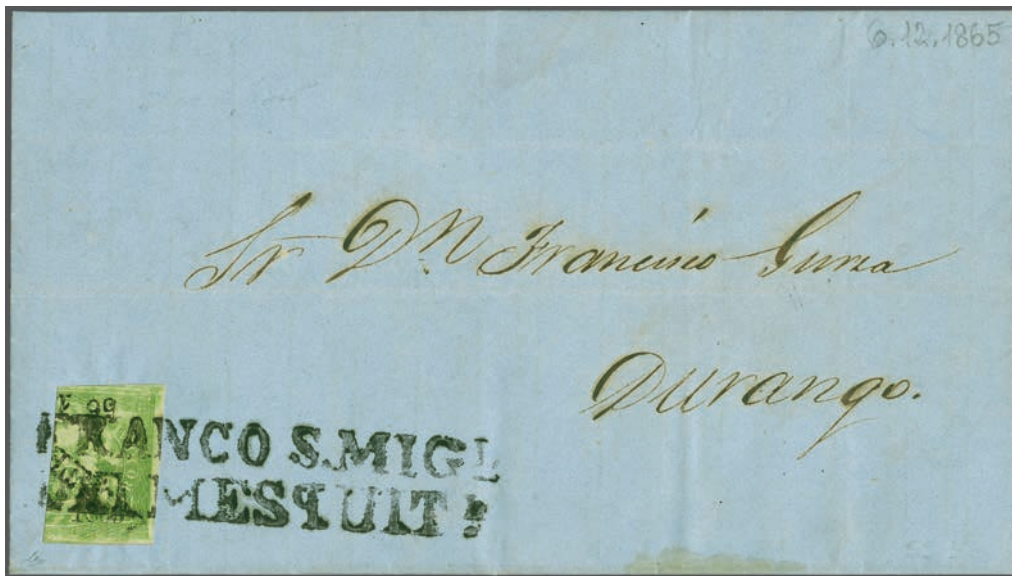 6.12.1865
Sr Dn Francisco Gurza
Durango.
FRANCO S.MIGL
MESQUIT